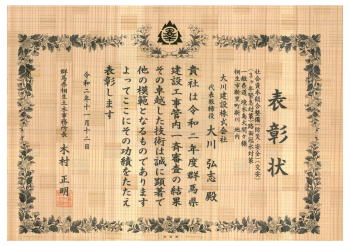 表彰状
社会資本総合整備(防災・安全)(交安)
大川建設株式会社
代表取締役 大川 弘志 殿
貴社は令和二年度群馬県
建設工事管内一斉審査の結果
その卓越した技術は誠に顕著で
他の模範となるものであります
よってここにその功績をたたえ
表彰します
令和二年十一月十二日
群馬県桐生土木事務所長 木村 正明